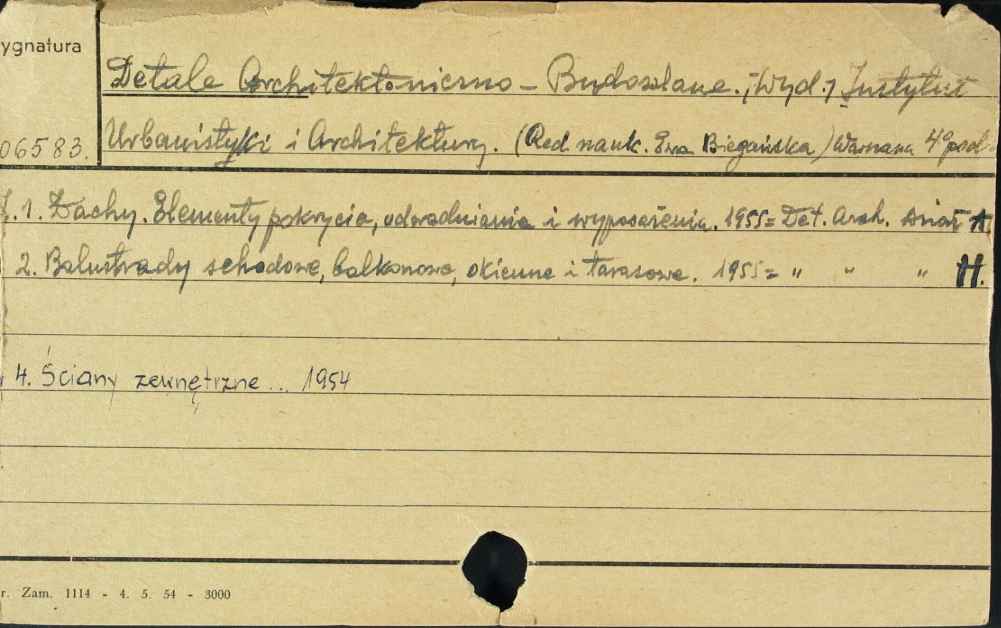 ygnatura
Detale Architektoniczno - Budowlane. ; Wyd. ; Instytut
06583.
Urbanistyki i Architektury. (Red nauk. Ewa Biegańska) Warszawa 4°
1. Dachy. Elementy pokrycia, odwadniania i wyposażenia. 1955 = Det. Arch.
2. Balustrady schodowe, balkonowe, okienne i tarasowe. 1955 = " " " H.
4. Ściany zewnętrzne... 1954
r. Zam. 1114 - 4. 5. 54 - 3000